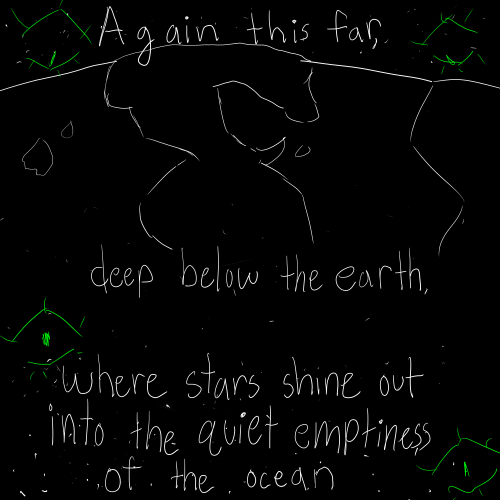 Again this far,
deep below the earth,
where stars shine out
into the quiet emptiness
of the ocean